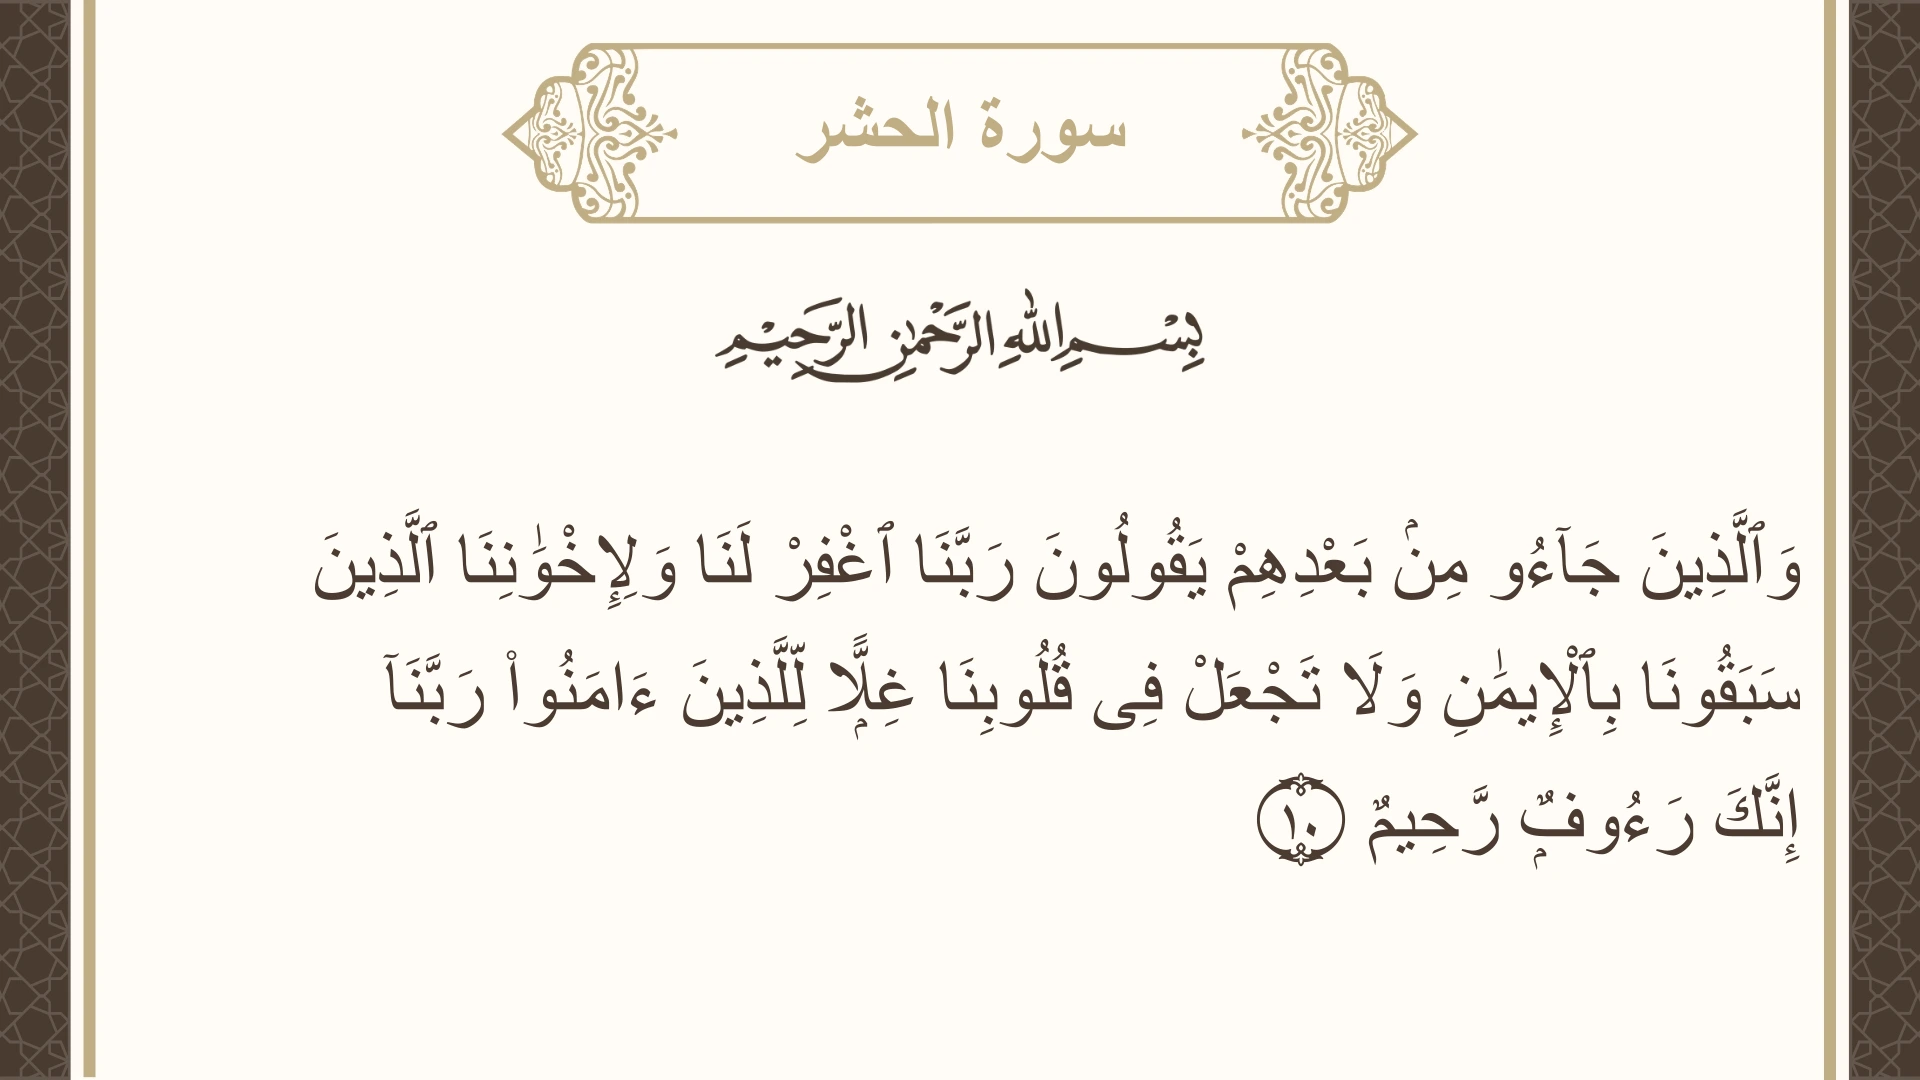 سورة الحشر
بِسْمِ اللهِ الرَّحْمٰنِ الرَّحِيْمِ
وَٱلَّذِينَ جَآءُو مِنۢ بَعْدِهِمْ يَقُولُونَ رَبَّنَا ٱغْفِرْ لَنَا وَلِإِخْوَٰنِنَا ٱلَّذِينَ
سَبَقُونَا بِٱلْإِيمَٰنِ وَلَا تَجْعَلْ فِى قُلُوبِنَا غِلًّۭا لِّلَّذِينَ ءَامَنُوا۟ رَبَّنَآ
إِنَّكَ رَءُوفٌۭ رَّحِيمٌ ١٠